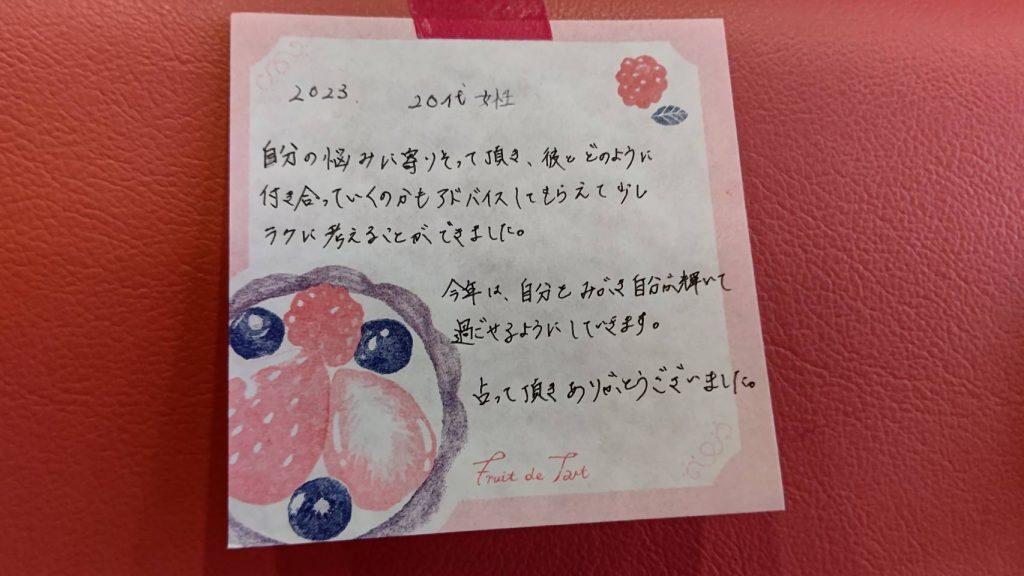 2023. 20代 女性
自分の悩みに寄りそって頂き、彼とどのように
付き合っていくのかもアドバイスしてもらえて少し
ラクに考えることができました。
今年は、自分をみがき自分が輝いて
過ごせるようにしていきます。
占って頂きありがとうございました。
Fruit de Tart